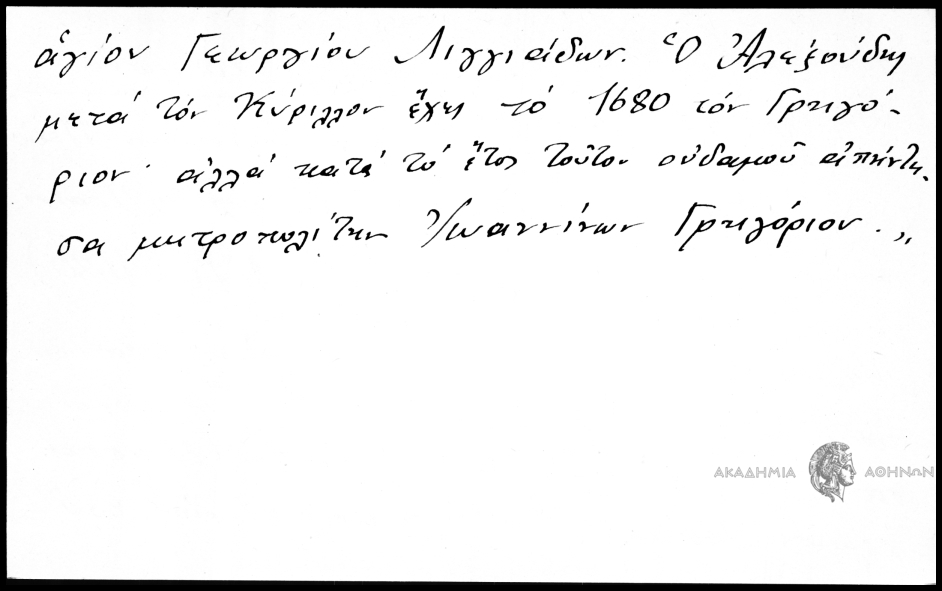 ἁγίου Γεωργίου Λιγγιάδων. Ὁ Ἀλεξούδης
μετά τόν Κύριλλον ἔχει τό 1680 τόν Γρηγό-
ριον· ἀλλά κατά τό ἔτος τοῦτο οὐδαμοῦ ἀπήντη-
σα μητροπολίτην Ἰωαννίνων Γρηγόριον.„
ΑΚΑΔΗΜΙΑ ΑΘΗΝΩΝ